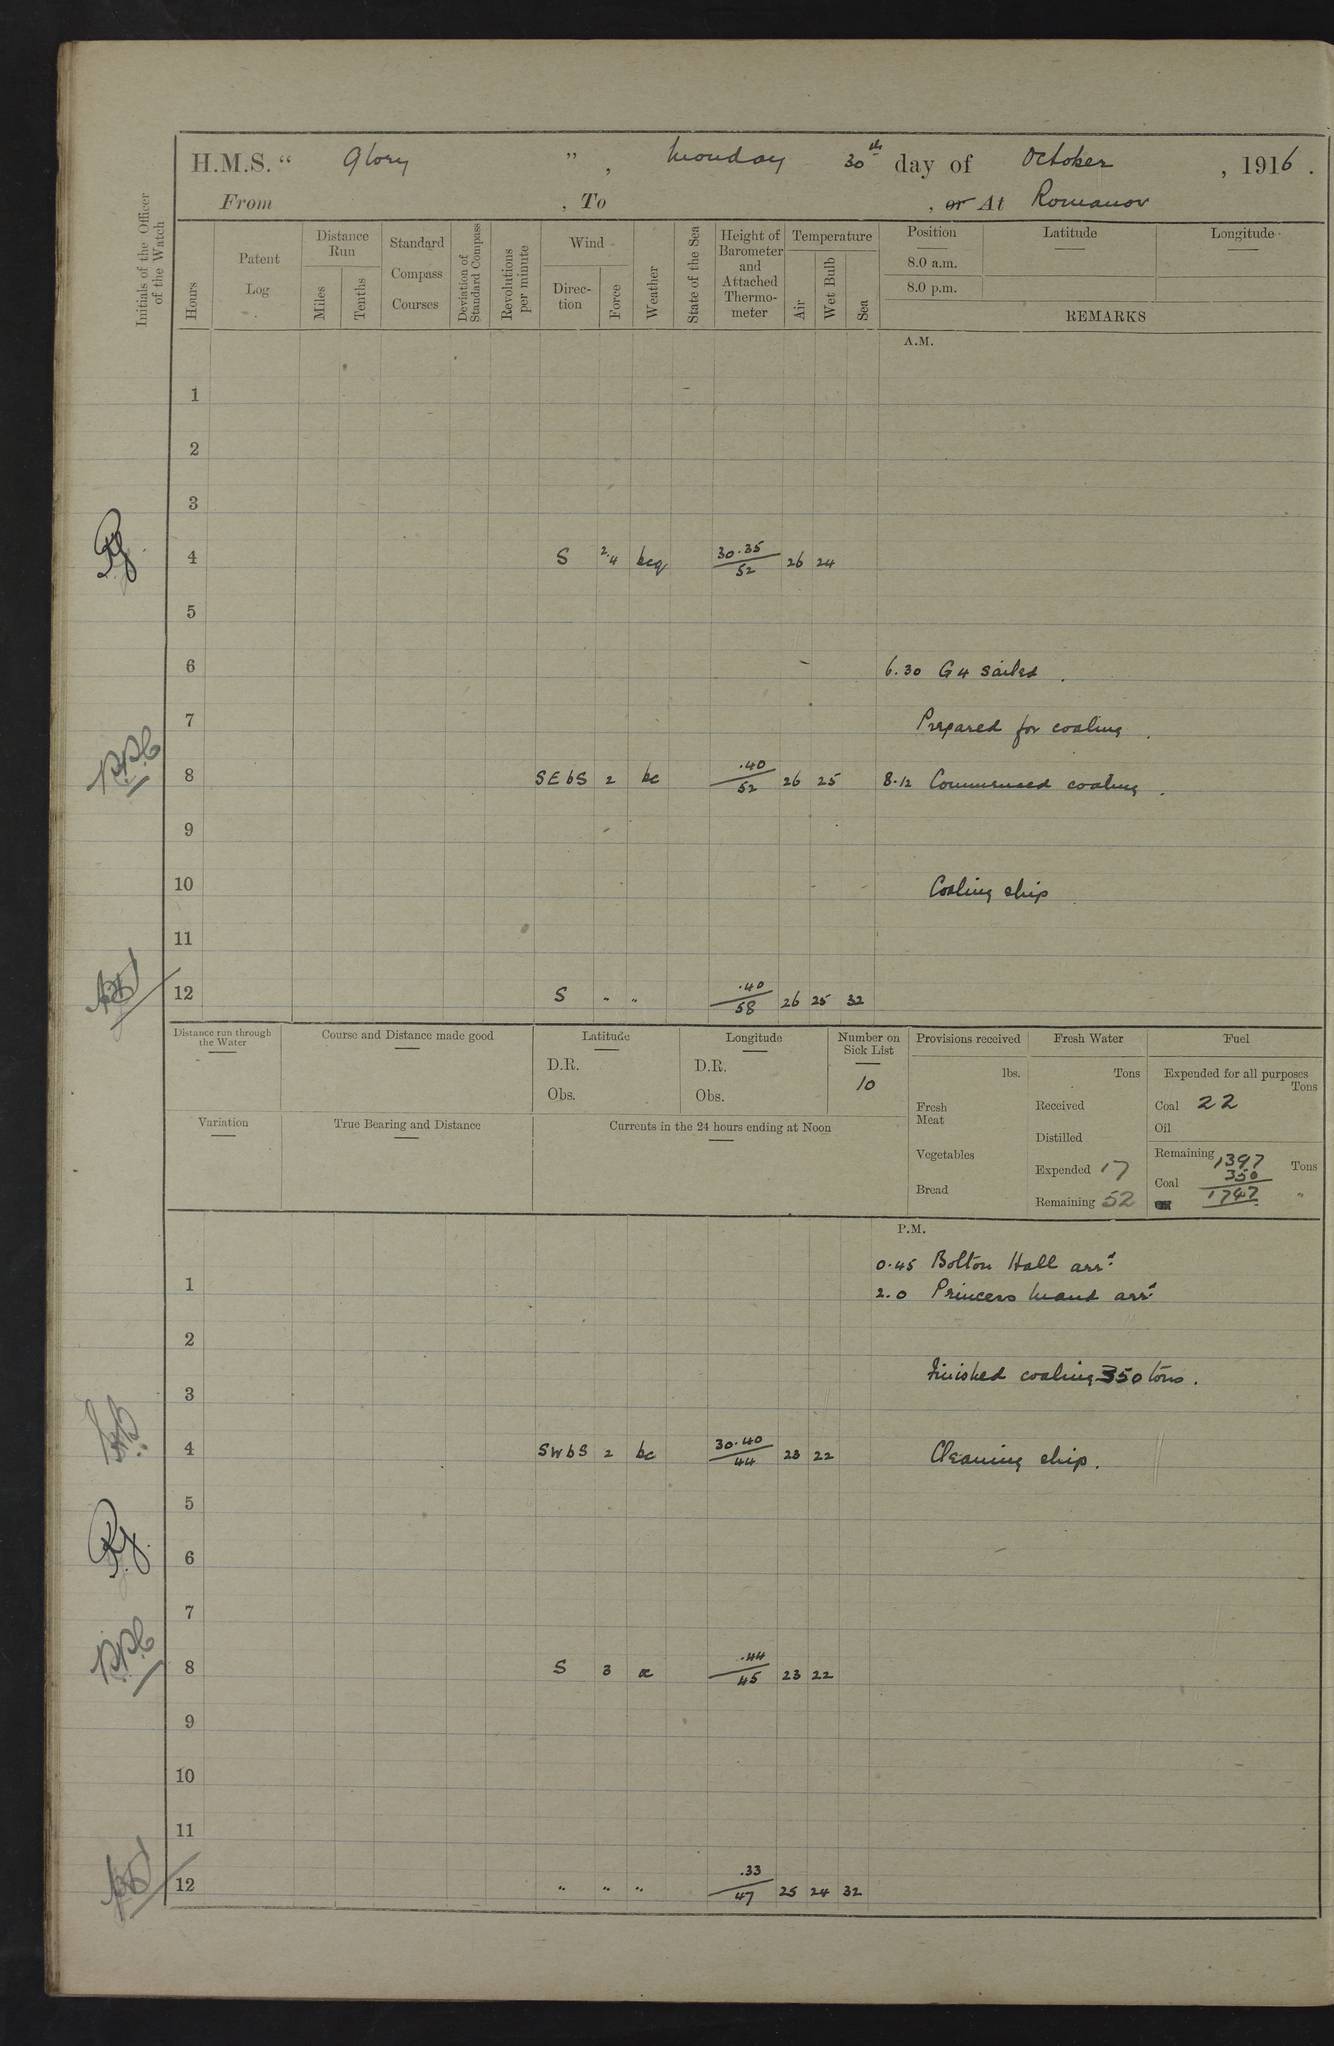 H.M.S. " Glory ", Monday 30th day of October, 1916.
From , To , or At Romanov
Initials of the Officer of the Watch
Hours
Patent Log
Distance Run
Miles
Tenths
Standard Compass Courses
Deviation of Standard Compass
Revolutions per minute
Wind
Direction
Force
Weather
State of the Sea
Height of Barometer and Attached Thermometer
Temperature
Air
Wet Bulb
Sea
Position Latitude Longitude
8.0 a.m.
8.0 p.m.
REMARKS
A.M.
1
2
3
4 S 2.4 bcq 30.35/52 26 24
5
6 6.30 G4 sailed.
7 Prepared for coaling.
P.P.C
8 SEbS 2 bc .40/52 26 25 8.12 Commenced coaling.
9
10 Coaling ship
11
12 S " " .40/58 26 25 32
Distance run through the Water
Course and Distance made good
Latitude
D.R.
Obs.
Longitude
D.R.
Obs.
Number on Sick List
10
Variation
True Bearing and Distance
Currents in the 24 hours ending at Noon
Provisions received
lbs.
Fresh Meat
Vegetables
Bread
Fresh Water
Tons
Received
Distilled
Expended 17
Remaining 52
Fuel
Expended for all purposes
Tons
Coal 22
Oil
Remaining 1397 Tons
Coal 350
1747 "
P.M.
0.45 Bolton Hall arrd.
1
2.0 Princess Maud arrd.
2
Finished coaling 350 tons.
3
4 SWbS 2 bc 30.40/44 23 22 Cleaning ship.
5
6
7
P.P.C
8 S 3 oc .44/45 23 22
9
10
11
12 " " " .33/47 25 24 32